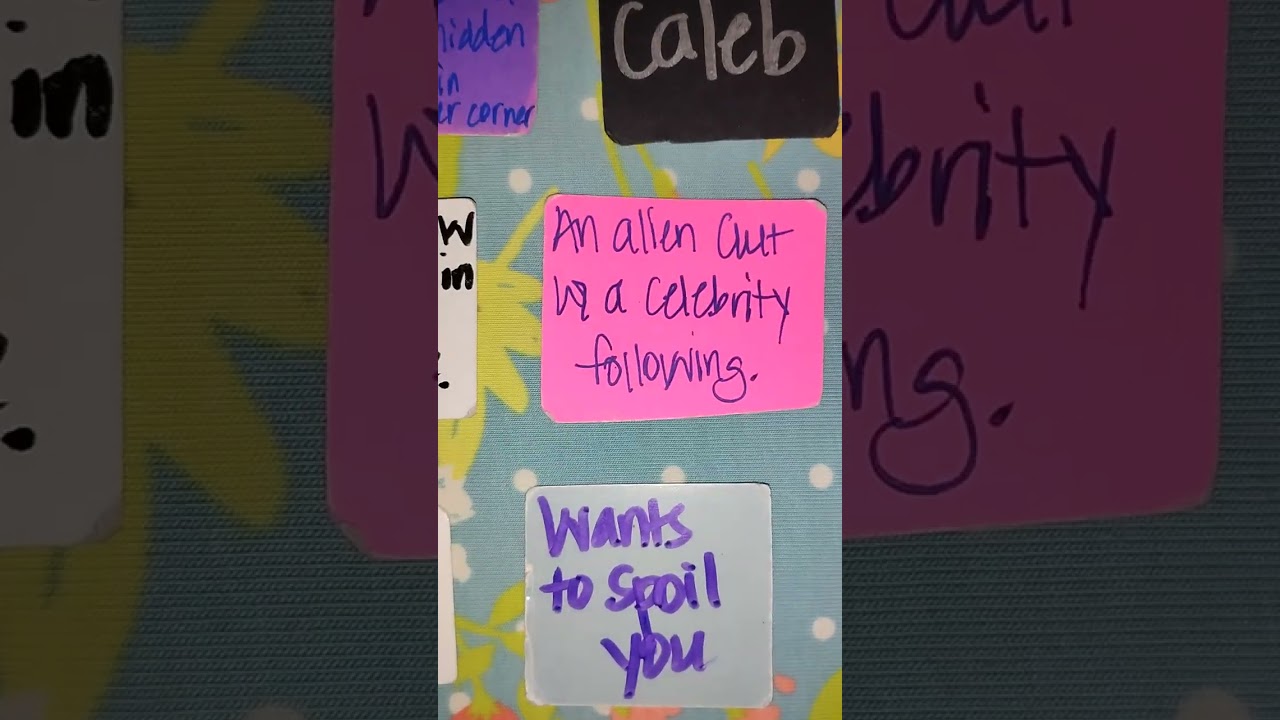 hidden
in
er corner
Caleb
W
in
An alien Cult
W a Celebrity
following.
Wants
to Spoil
you